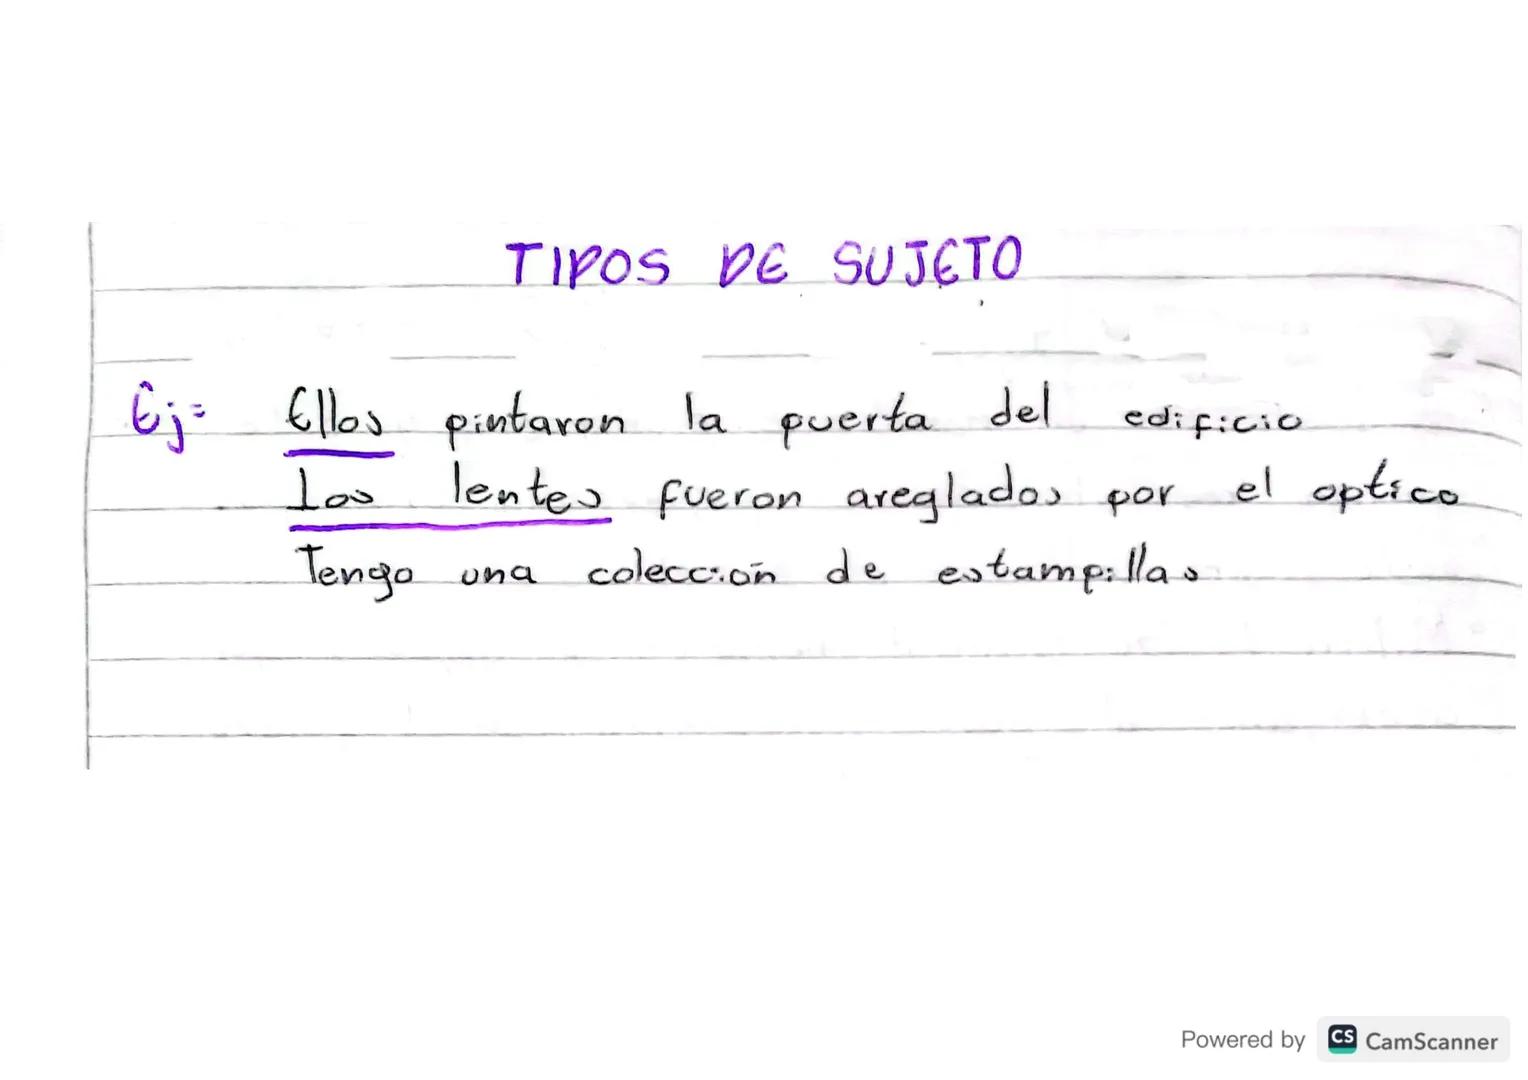 TIPOS DE SUJETO
Ej= Ellos pintaron la puerta del edificio
Los lentes fueron areglados por el optico
Tengo una colección de estampillas
Powered by CS CamScanner